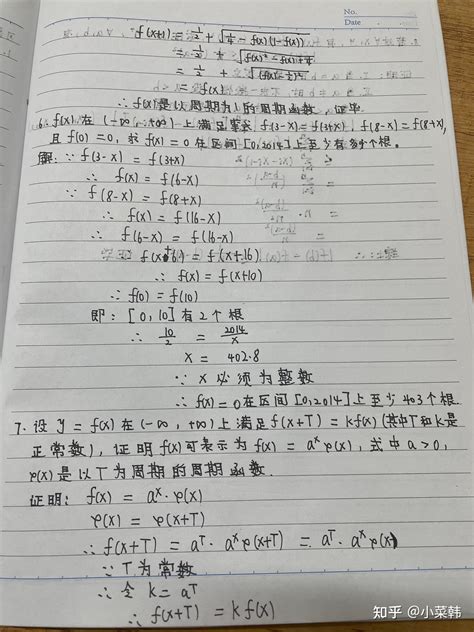 No.
Date
f(x+1) = 1/2 + √(1/4 - f(x)(1-f(x)))
= 1/2 + √(f(x)² - f(x) + 1/4)
= 1/2 + √((f(x) - 1/2)²)
∴ f(x)是以周期为1的周期函数 证毕
6. f(x)在(-∞,+∞)上满足 f(3-x)=f(3+x), f(8-x)=f(8+x),
且f(0)=0, 求f(x)=0在区间[0,2014]上至少有多少个根。
解: ∵ f(3-x) = f(3+x)
∴ f(x) = f(6-x)
∵ f(8-x) = f(8+x)
∴ f(x) = f(16-x)
∴ f(6-x) = f(16-x)
f(x+6) = f(x+16)
∴ f(x) = f(x+10)
∴ f(0) = f(10)
即: [0,10]有2个根
∴ 10/2 = 2014/x
x = 402.8
∵ x必须为整数
∴ f(x)=0在区间[0,2014]上至少403个根
7. 设y=f(x)在(-∞,+∞)上满足f(x+T)=kf(x)(其中T和k是
正常数), 证明f(x)可表示为f(x)=aˣφ(x), 式中a>0,
φ(x)是以T为周期的周期函数.
证明: f(x) = aˣ·φ(x)
φ(x) = φ(x+T)
∴ f(x+T) = aᵀ·aˣφ(x+T) = aᵀ·aˣφ(x)
∵ T为常数
∴ 令k=aᵀ
∴ f(x+T) = kf(x)
知乎 @小菜韩